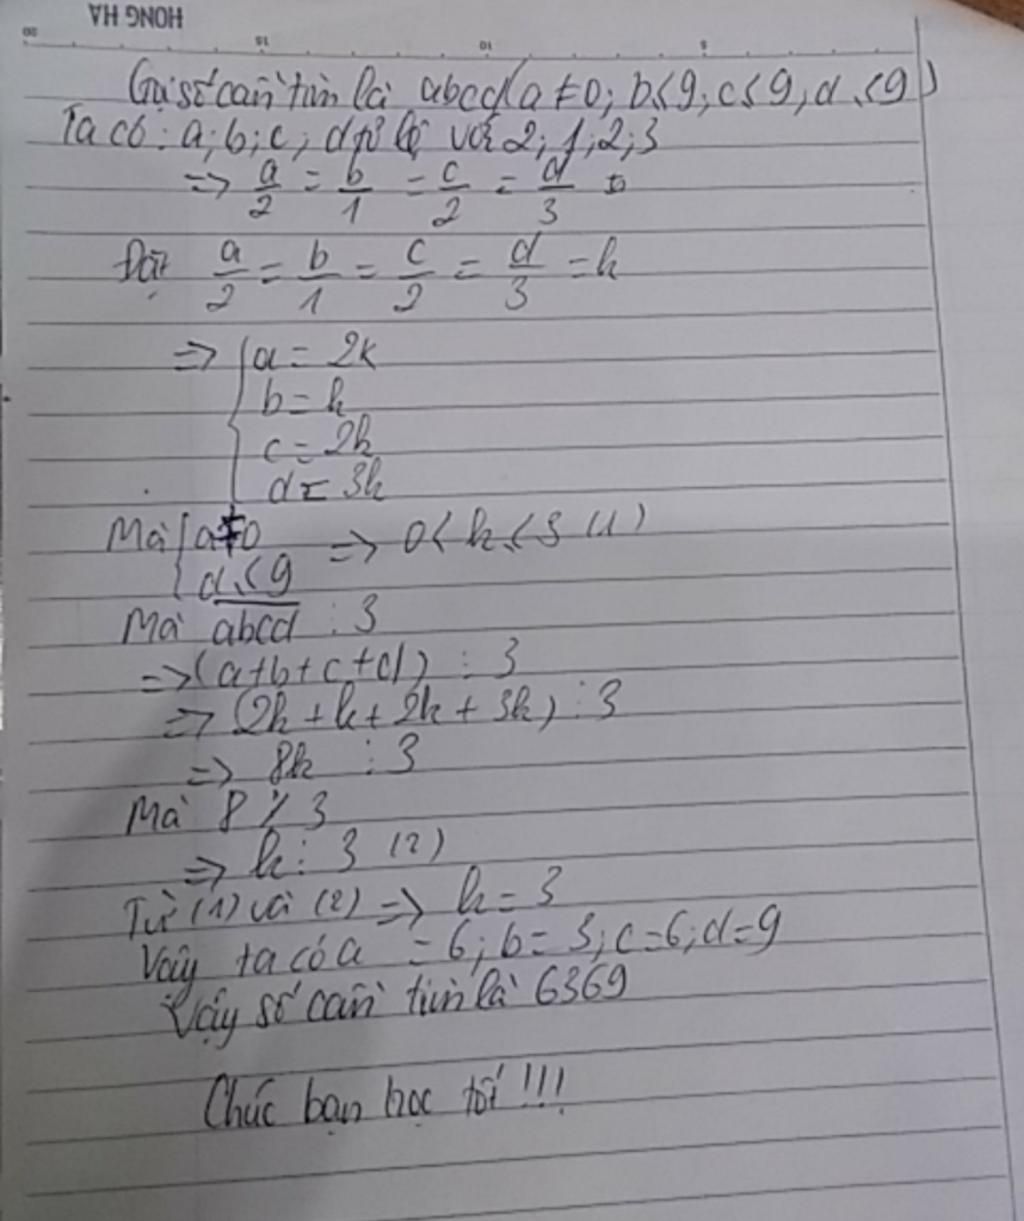 HONG HA
20 15 10 5
Gọi số cần tìm là abcd (a ≠ 0; b ≤ 9; c ≤ 9; d ≤ 9)
Ta có: a; b; c; d tỉ lệ với 2; 1; 2; 3
=> a/2 = b/1 = c/2 = d/3
Đặt a/2 = b/1 = c/2 = d/3 = k
=> { a = 2k
b = k
c = 2k
d = 3k
Mà { a ≠ 0 => 0 < k ≤ 3 (1)
d ≤ 9
Mà abcd ⋮ 3
=> (a+b+c+d) ⋮ 3
=> (2k + k + 2k + 3k) ⋮ 3
=> 8k ⋮ 3
Mà 8 ⋮̸ 3
=> k ⋮ 3 (2)
Từ (1) và (2) => k = 3
Vậy ta có a = 6; b = 3; c = 6; d = 9
Vậy số cần tìm là 6369
Chúc bạn học tốt !!!